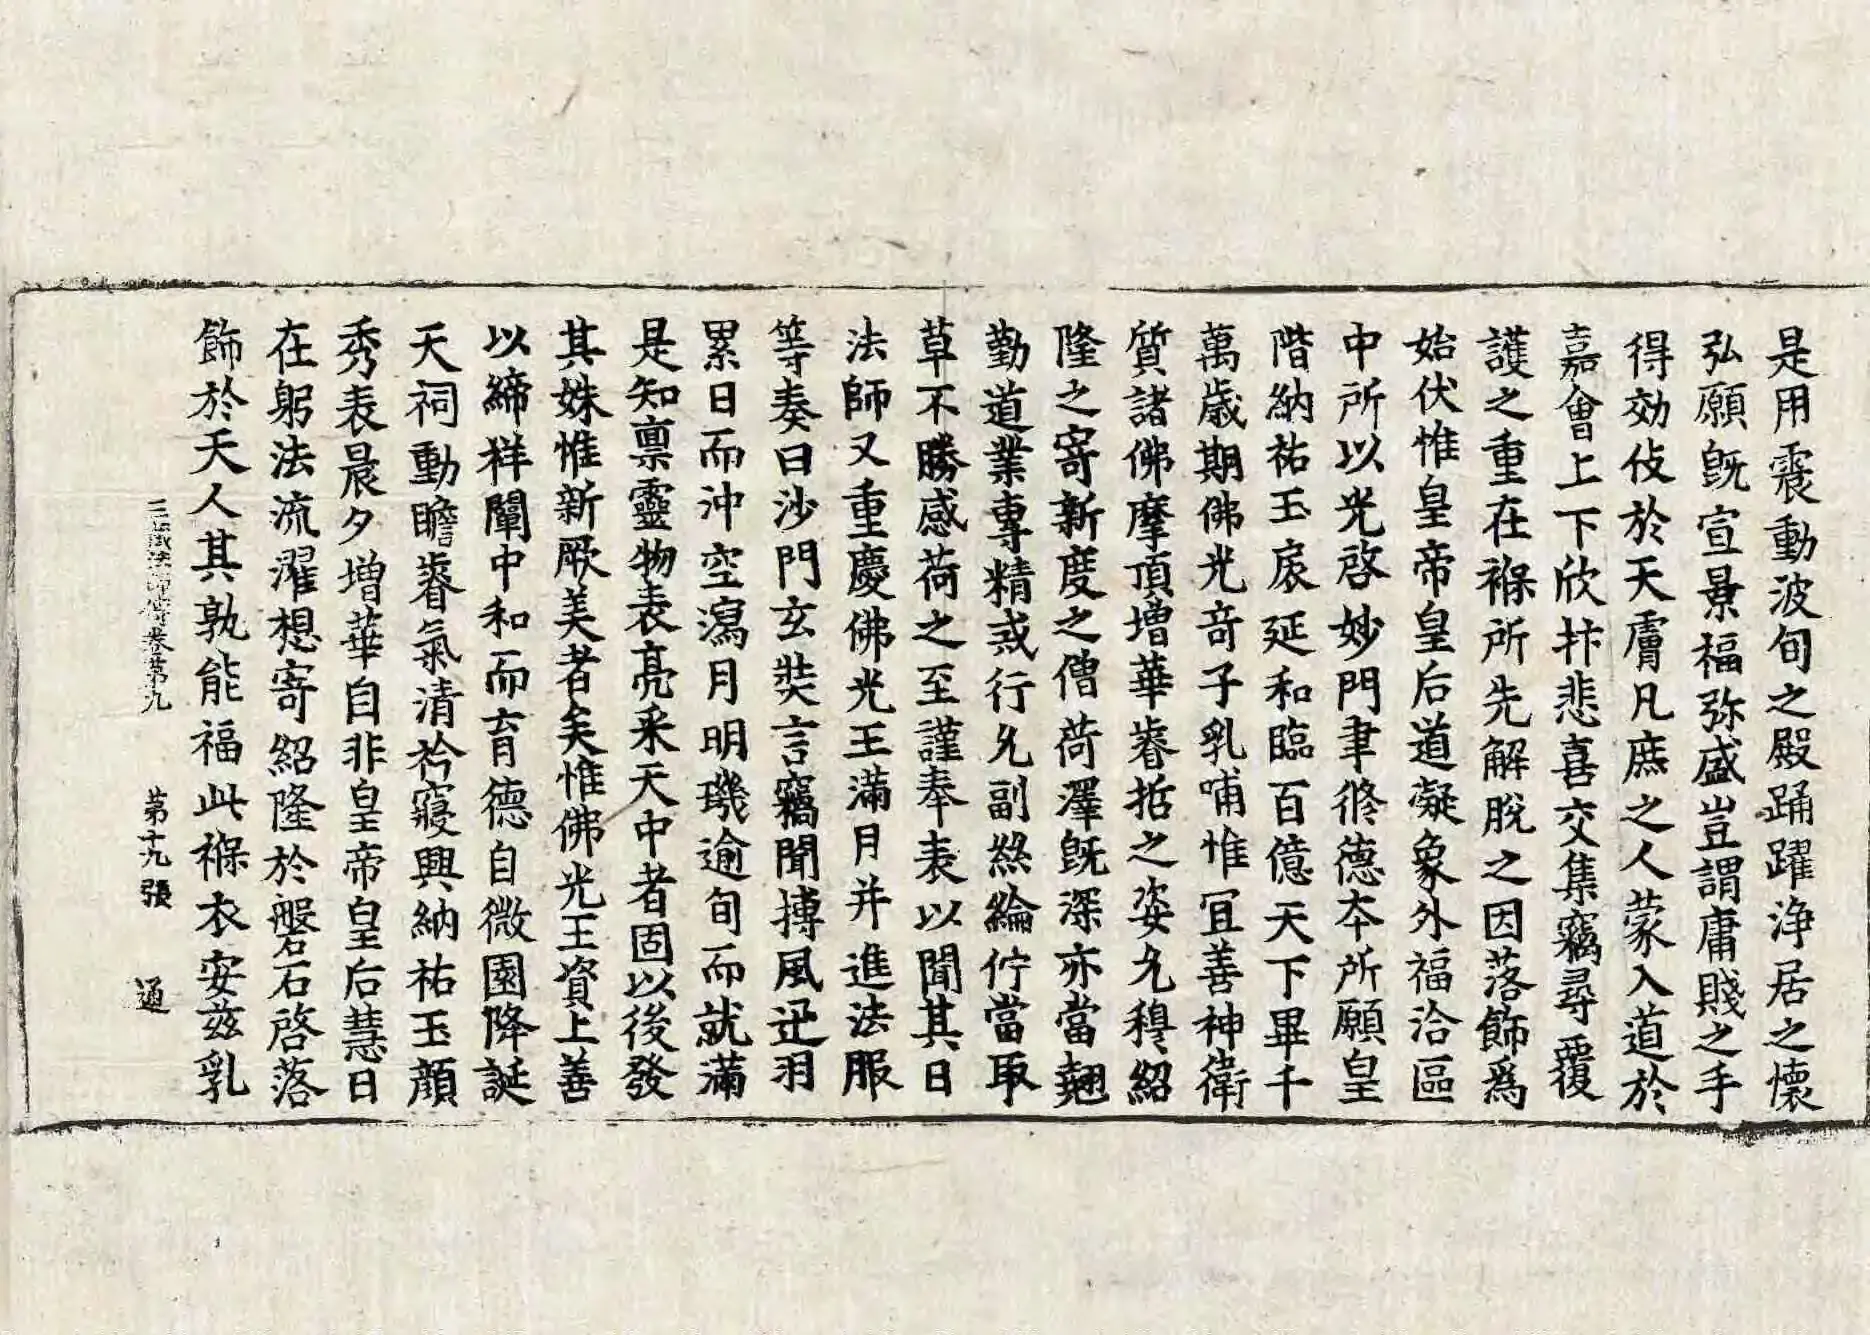 是用震動波旬之殿踊躍淨居之懷
弘願既宣景福弥盛豈謂庸賤之手
得効伎於天膚凡庶之人蒙入道於
嘉會上下欣抃悲喜交集竊尋覆
護之重在褓所先解脫之因落飾爲
始伏惟皇帝皇后道凝象外福洽區
中所以光啓妙門聿修德本所願皇
階納祐玉扆延和臨百億天下畢千
萬歲期佛光竒子乳哺惟冝善神衛
質諸佛摩頂增華睿哲之姿允穆紹
隆之寄新度之僧荷澤既深亦當翹
勤道業專精戒行允副絲綸佇當取
草不勝感荷之至謹奉表以聞其日
法師又重慶佛光王滿月并進法服
等奏曰沙門玄奘言竊聞搏風迅羽
累日而沖空瀉月明璣逾旬而就滿
是知禀靈物表亮采天中者固以後發
其姝惟新厥美者矣惟佛光王資上善
以締祥闡中和而育德自微園降誕
天祠動瞻睿氣清衿寢興納祐玉顔
秀表晨夕增華自非皇帝皇后慧日
在躬法流濯想寄紹隆於磐石啓落
飾於天人其孰能福此褓衣安茲乳
三藏法師傳卷第九 第十九張 通